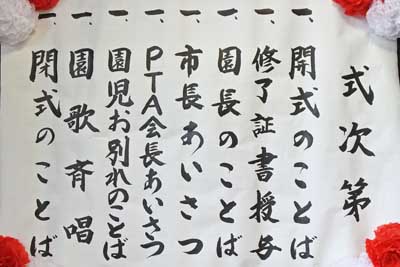 式次第
一、開式のことば
一、修了証書授与
一、園長のことば
一、市長あいさつ
一、PTA会長あいさつ
一、園児お別れのことば
一、園歌斉唱
一、閉式のことば